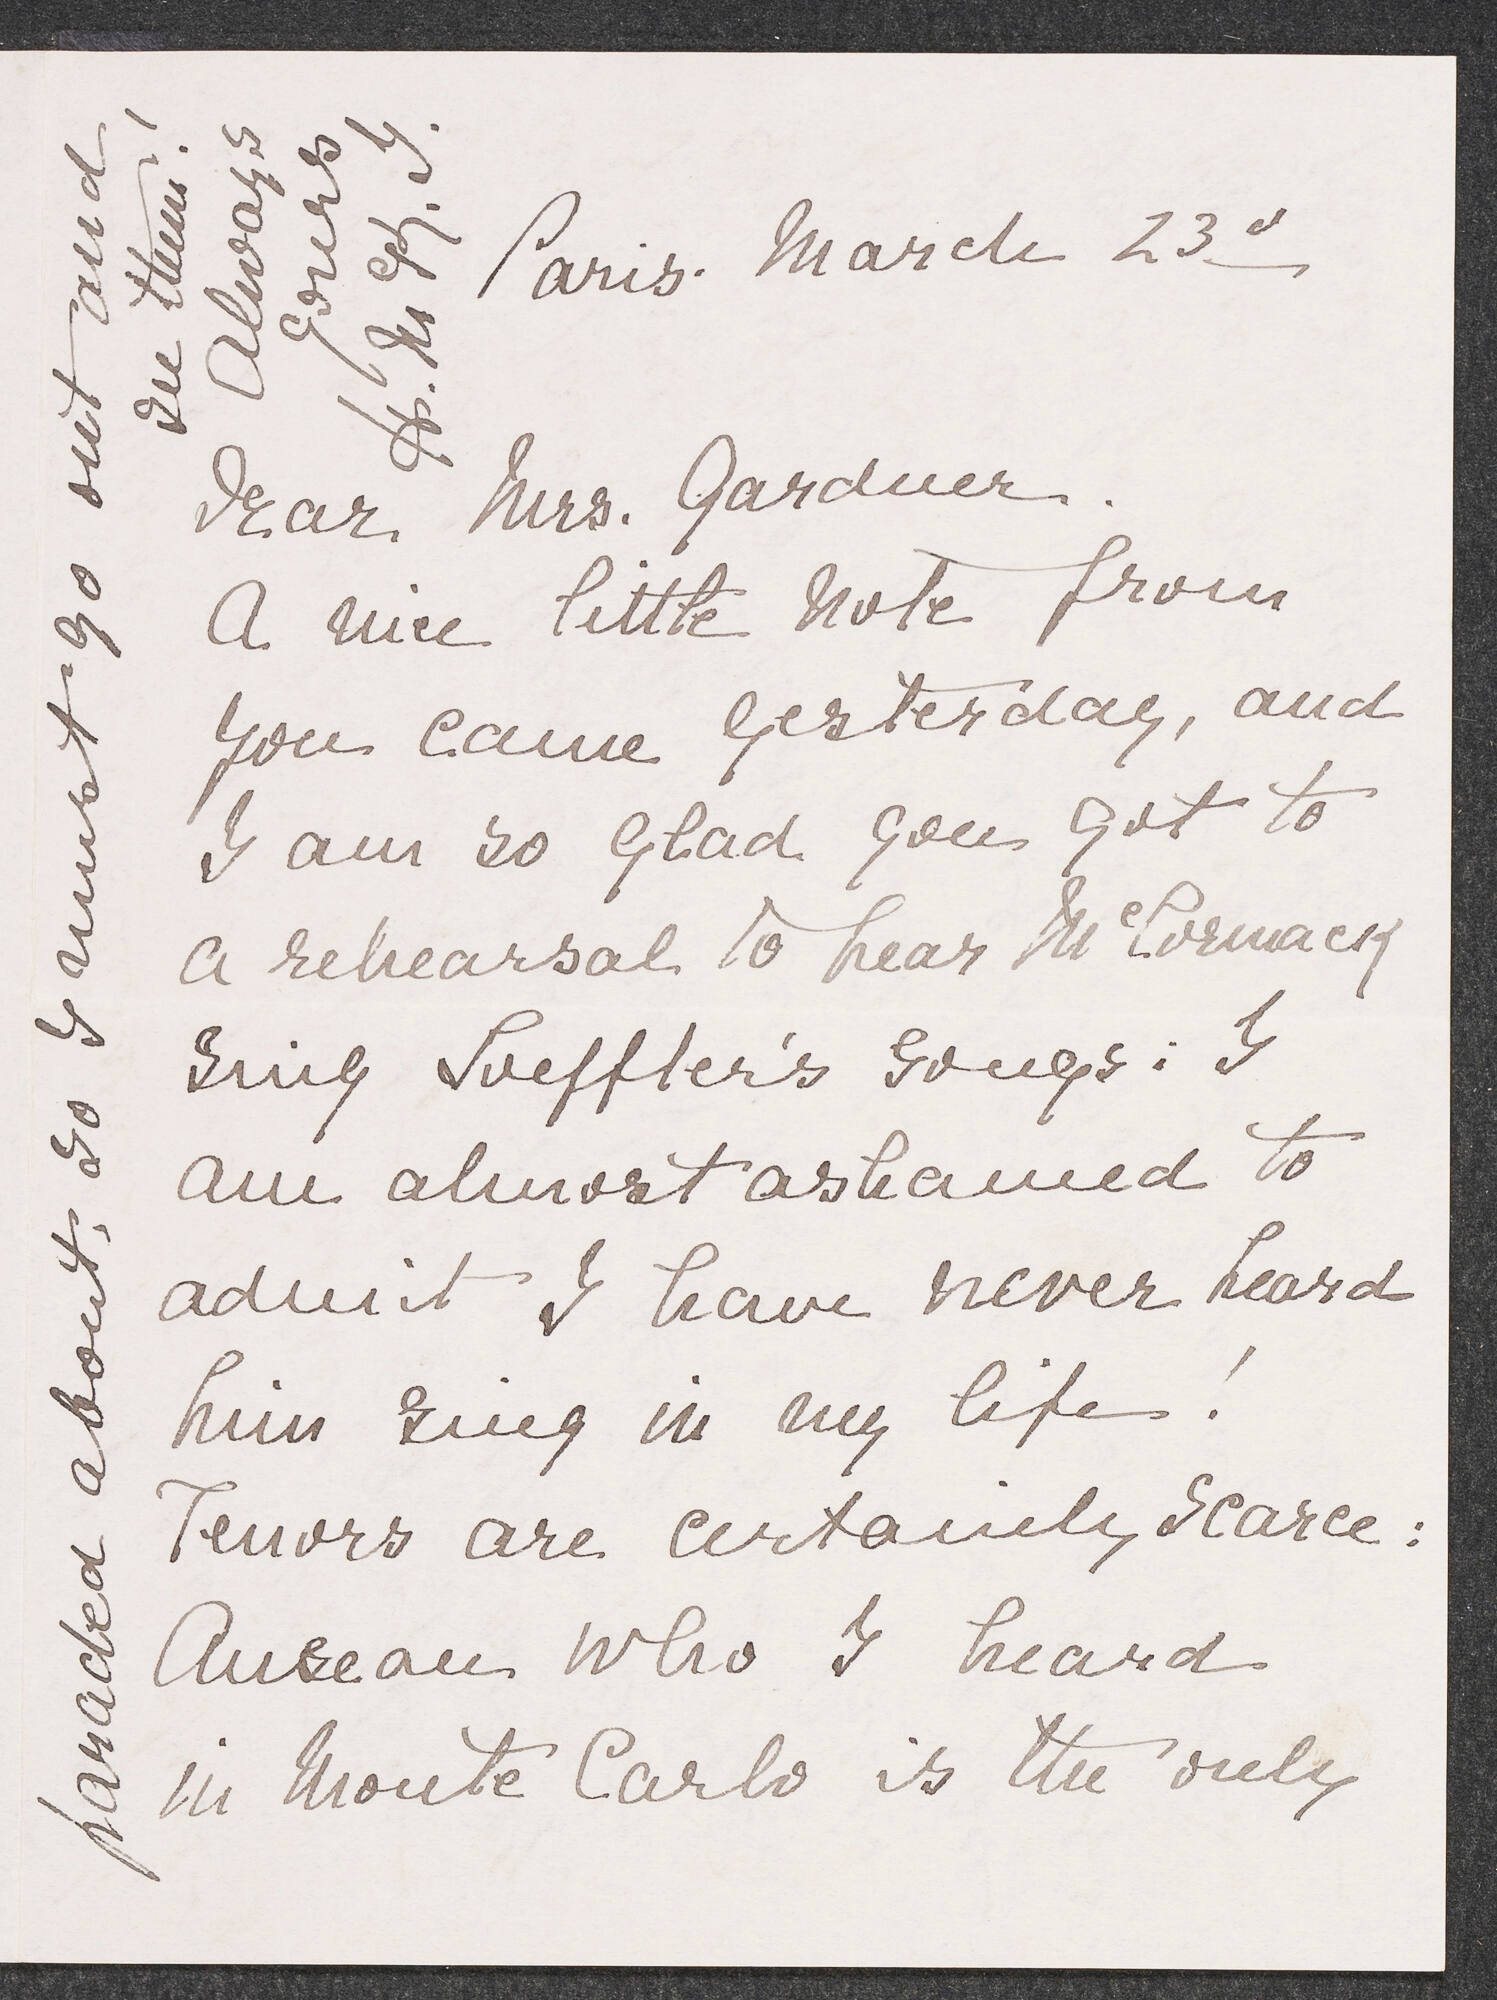 Paris. March 23d
Dear Mrs. Gardner.
A nice little note from
you came yesterday, and
I am so glad you got to
a rehearsal to hear McCormack
sing Loeffler's songs: I
am almost ashamed to
admit I have never heard
him sing in my life!
Tenors are certainly scarce:
Anseau who I heard
in Monte Carlo is the only
paraded about, so I must go out and
see them!
Always
yours